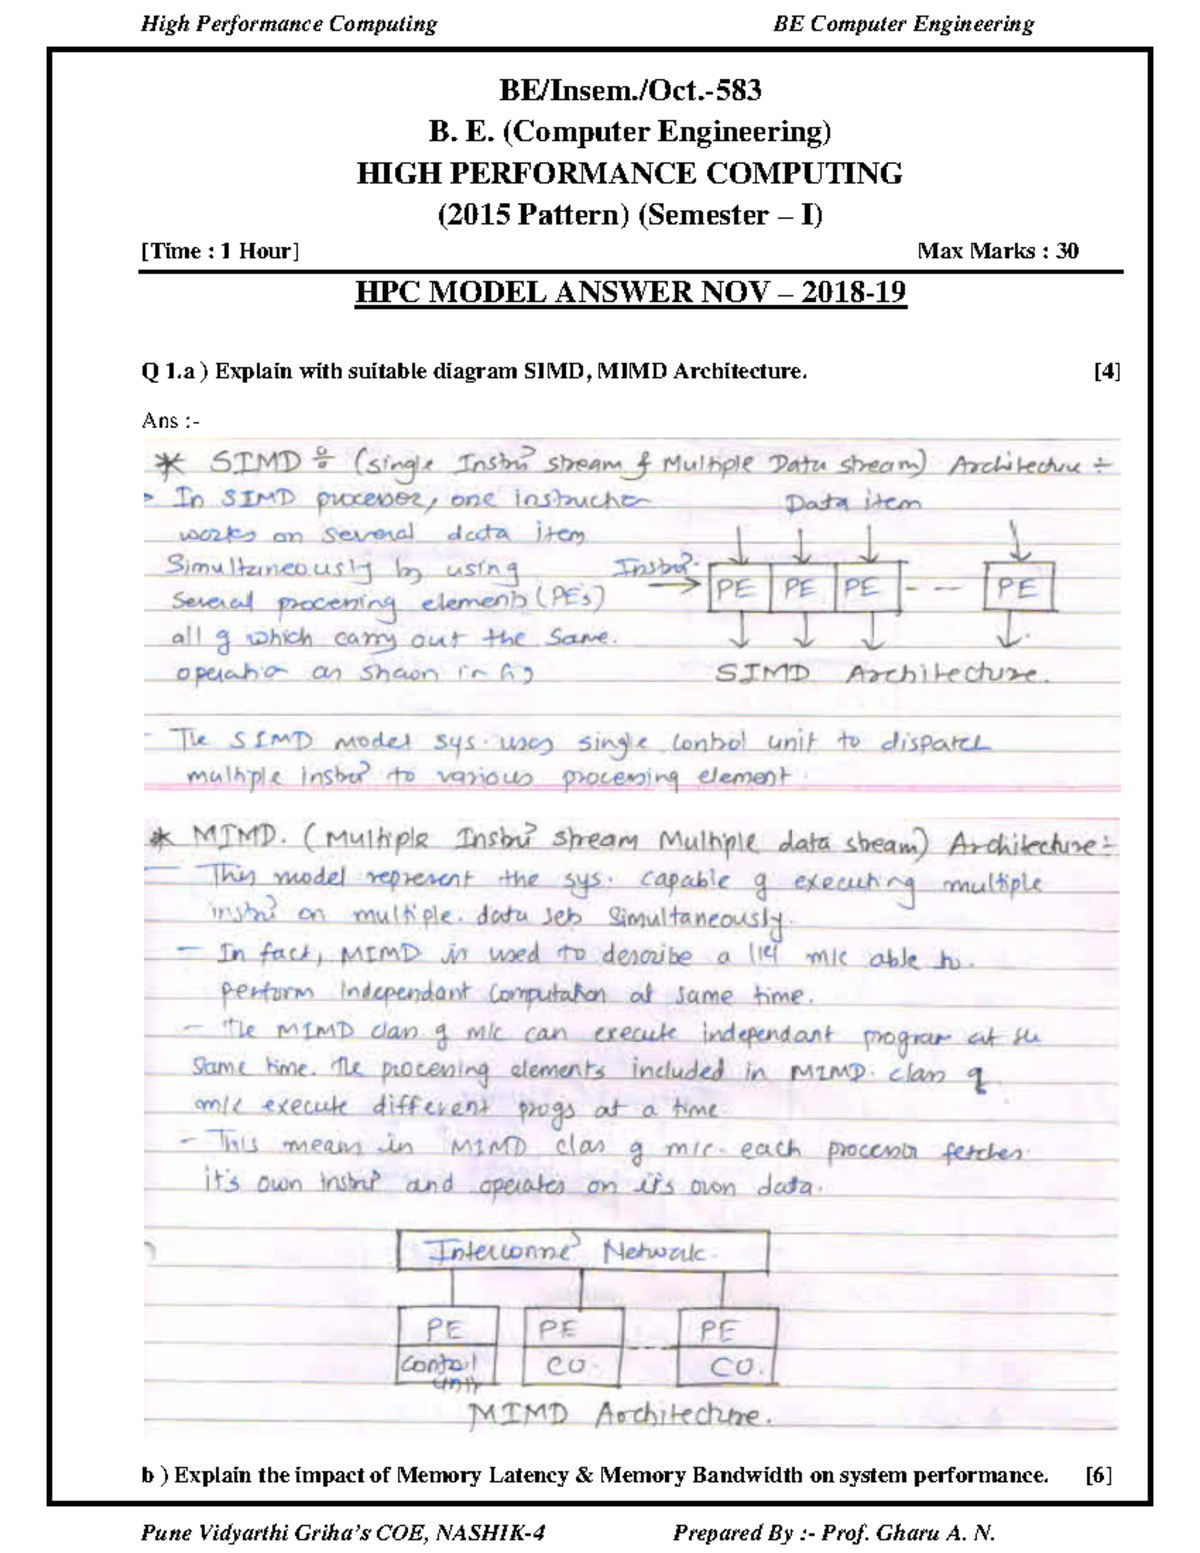 High Performance Computing BE Computer Engineering
BE/Insem./Oct.-583
B. E. (Computer Engineering)
HIGH PERFORMANCE COMPUTING
(2015 Pattern) (Semester – I)
[Time : 1 Hour] Max Marks : 30
HPC MODEL ANSWER NOV – 2018-19
Q 1.a ) Explain with suitable diagram SIMD, MIMD Architecture. [4]
Ans :-
* SIMD ÷ (Single Instrⁿ stream & Multiple Data stream) Architecture ÷
In SIMD processor, one instruction
works on several data item
Simultaneously by using
several processing elements (PEs)
all of which carry out the same.
operation as shown in fig
Data item
Instrⁿ.
PE PE PE - - - PE
SIMD Architecture.
- The SIMD model sys. uses single control unit to dispatch
multiple instrⁿ to various processing element.
* MIMD. (Multiple Instrⁿ stream Multiple data stream) Architecture ÷
- This model represent the sys. capable of executing multiple
instrⁿ on multiple data sets simultaneously.
- In fact, MIMD is used to describe a 11el m/c able to.
perform Independant Computation at same time.
- The MIMD class of m/c can execute independant program at the
same time. The processing elements included in MIMD. class of
m/c execute different progs at a time.
- This means in MIMD class of m/c. each processor fetches
it's own instrⁿ and operates on it's own data.
Interconneⁿ Network.
PE PE PE
Control unit CU. CU.
MIMD Architecture.
b ) Explain the impact of Memory Latency & Memory Bandwidth on system performance. [6]
Pune Vidyarthi Griha's COE, NASHIK-4 Prepared By :- Prof. Gharu A. N.